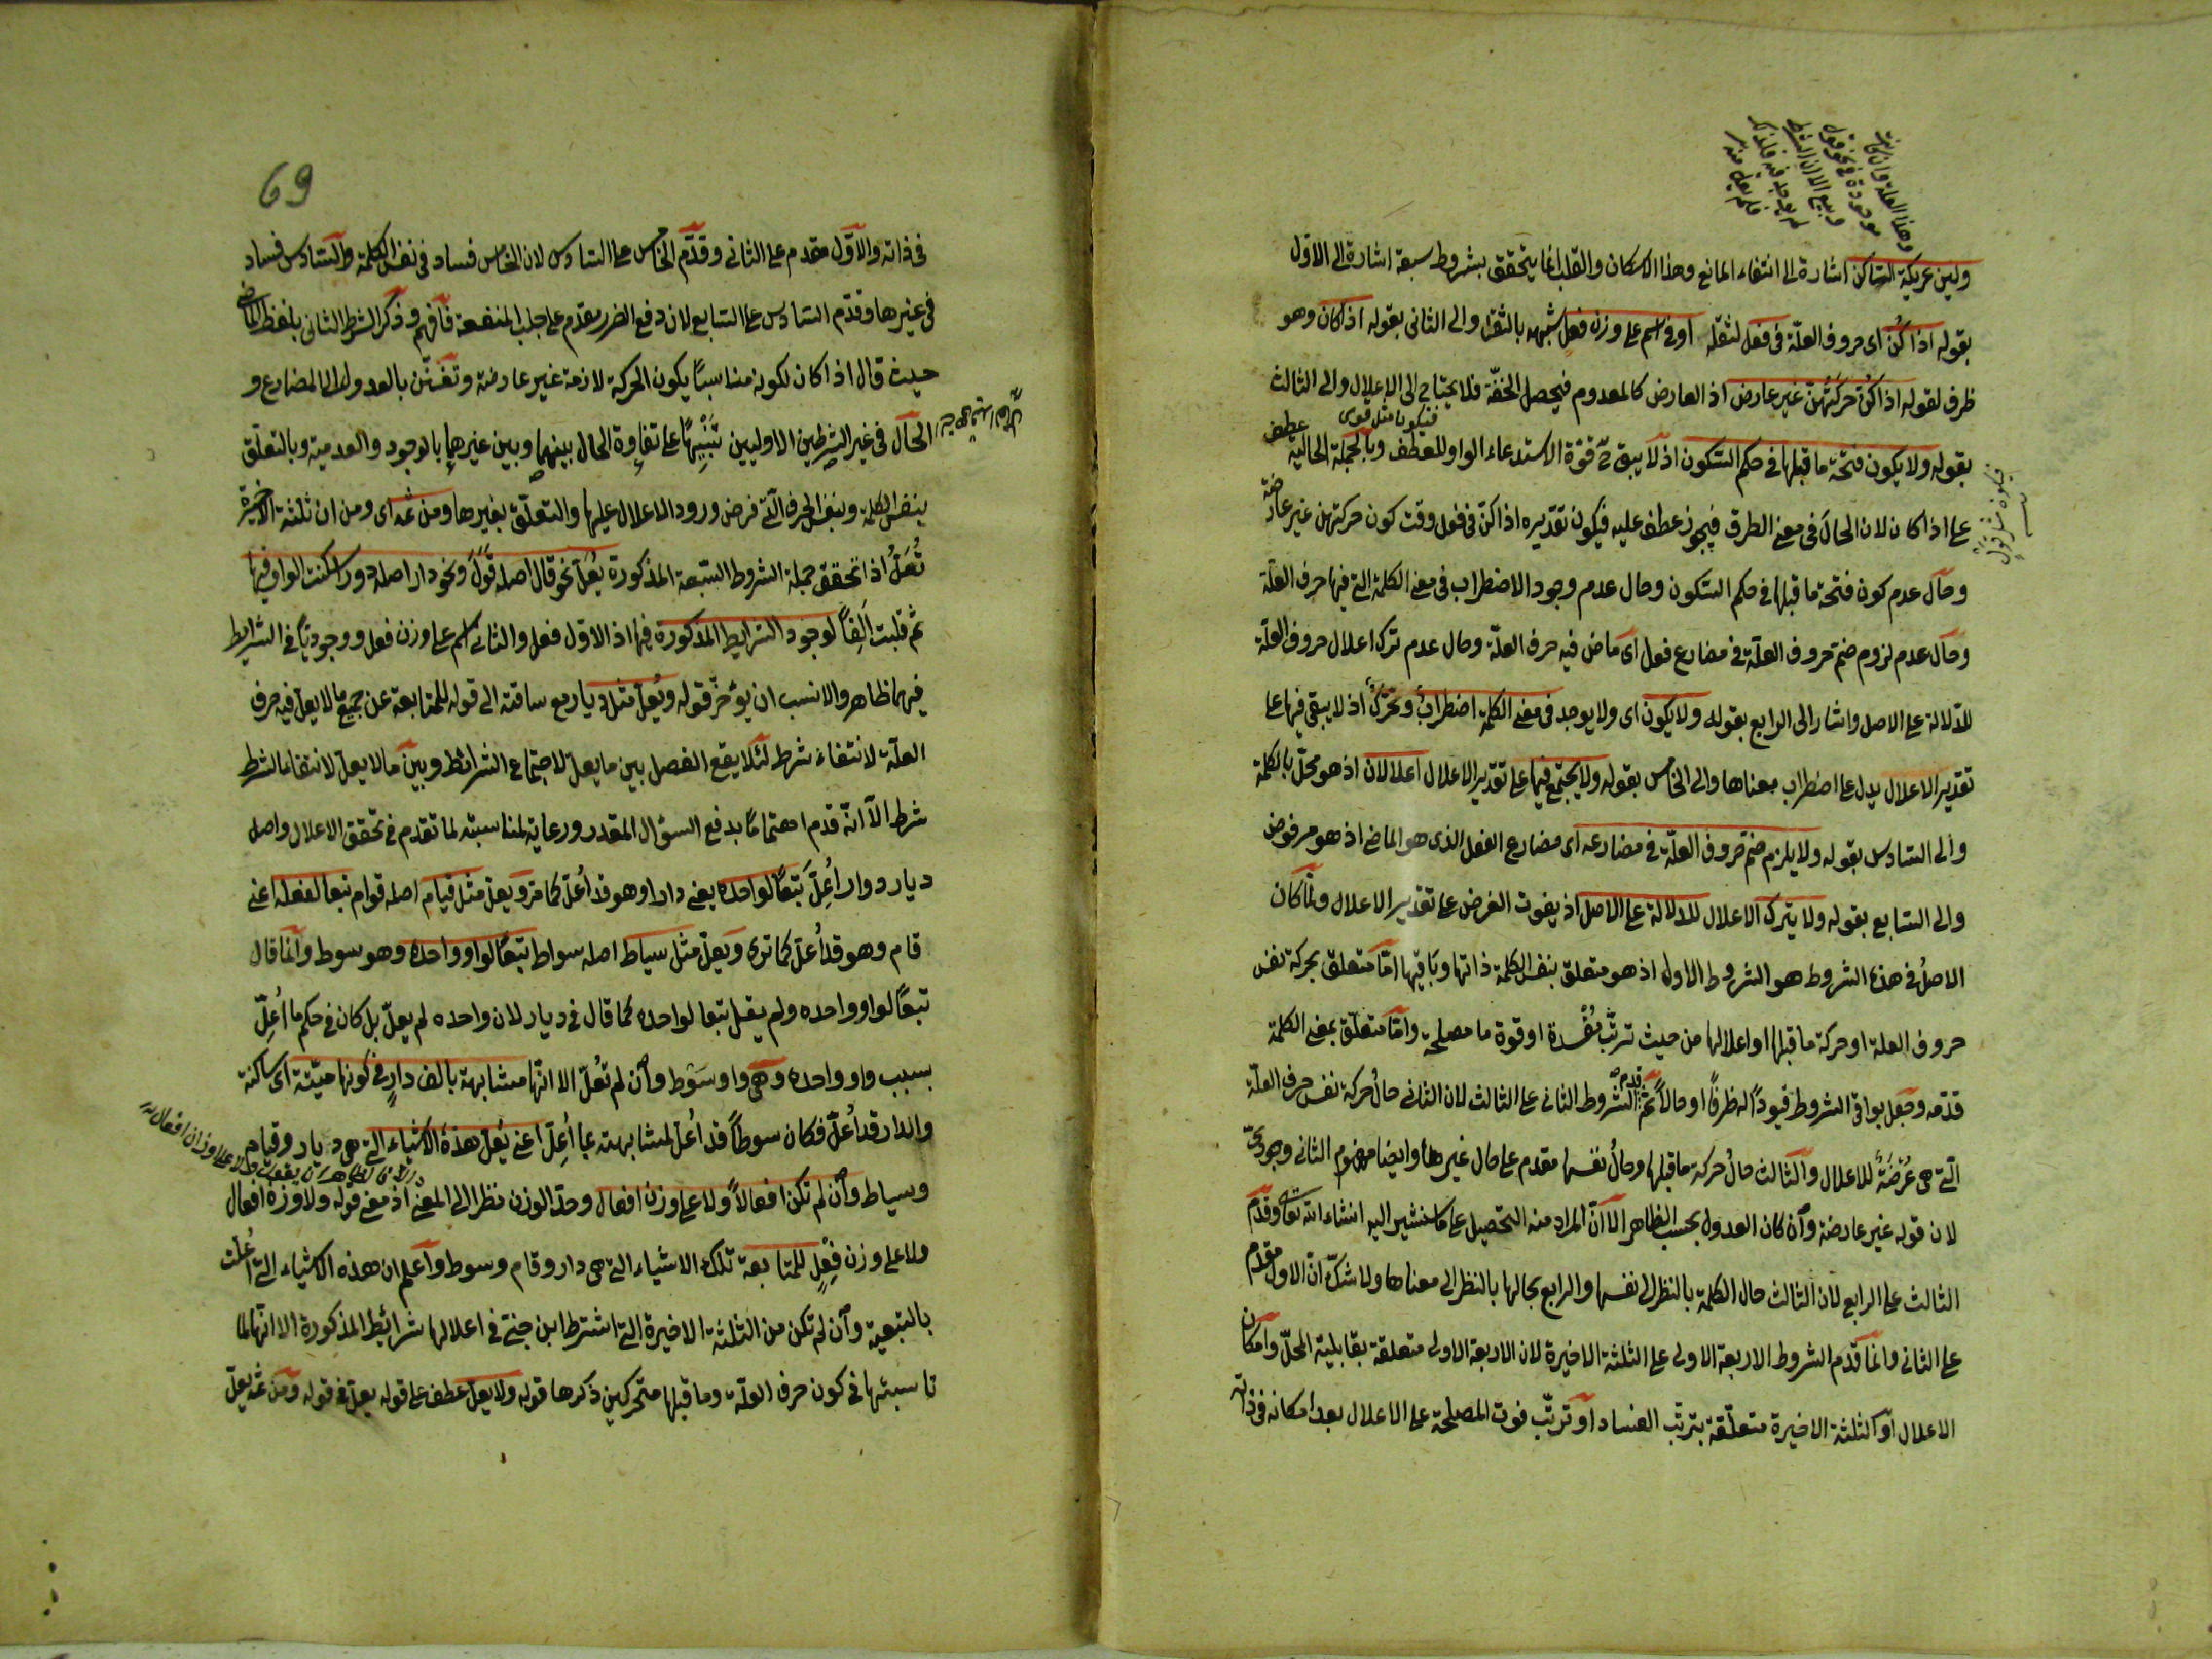 ولين عريكة الساكن اشارة الى انتفاء المانع وهذا الاسكان والقلب انما يتحقق بشروط سبعة اشارة الى الاول
بقوله اذا كن اى حروف العلة فى فعل لثقله او فى اسم على وزن فعل شبهه بالثقل والى الثانى بقوله اذا كان وهو
ظرف لقوله اذا كن حركتهن غير عارض اذ العارض كالمعدوم فيحصل الخفة فلا يحتاج الى الاعلال والى الثالث
بقوله ولا يكون فتحة ما قبلها فى حكم السكون اذ لا يبقى ح قوة الاستدعاء الواو للعطف وبالجملة الحالية عطف
على اذا كان لان الحال فى معنى الظرف فيجوز عطف عليه فيكون تقديره اذا كن فى فعل وقت كون حركتهن غير عارضة
وحال عدم كون فتحة ما قبلها فى حكم السكون وحال عدم وجود الاضطراب فى معنى الكلمة التى فيها حرف العلة
وحال عدم لزوم ضم حروف العلة فى مضارع فعل اى ماض فيه حرف العلة وحال عدم ترك اعلال حروف العلة
للدلالة على الاصل واشار الى الرابع بقوله ولا يكون اى ولا يوجد فى معنى الكلمة اضطراب وتحرك اذ لا يبقى فيها على
تقدير الاعلال يدل على اضطراب معناها والى الخامس بقوله ولا يجتمع فيها على تقدير الاعلال اعلالان اذ هو مخل بالكلمة
والى السادس بقوله ولا يلزم ضم حروف العلة فى مضارعه اى مضارع الفعل الذى هو الماضى اذ هو مرفوض
والى السابع بقوله ولا يترك الاعلال للدلالة على الاصل اذ يفوت الغرض على تقدير الاعلال ولما كان
الاصل فى هذه الشروط هو الشروط الاول اذ هو متعلق بنفس الكلمة ذاتها وباقيها اما متعلق بحركة نفس
حروف العلة او حركة ما قبلها او اعلالها من حيث ترتب مفسدة او قوة ما مصلحة واما متعلق بمعنى الكلمة
قدمه وجعل بواقى الشروط قيودا له ظرفا او حالا ثم قدم الشروط الثانى على الثالث لان الثانى حال حركة نفس حرف العلة
التى هى عرضة للاعلال والثالث حال حركة ما قبلها وحال نفسها مقدم على حال غيرها وايضا مفهوم الثانى وجودى
لان قوله غير عارضة وان كان العدول بحسب الظاهر الا ان المراد منه التحصيل على ما سنشير اليه انشاء الله تعالى وقدم
الثالث على الرابع لان الثالث حال الكلمة بالنظر الى نفسها والرابع بحالها بالنظر الى معناها ولا شك ان الاول مقدم
على الثانى وانما قدم الشروط الاربعة الاولى على الثلثة الاخيرة لان الاربعة الاولى متعلقة بقابلية المحل وامكان
الاعلال والثلثة الاخيرة متعلقة بترتب الفساد او ترتب فوت المصلحة على الاعلال بعد امكانه فى ذاته
69
فى ذاته والاول مقدم على الثانى وقدم الخامس على السادس لان الخامس فساد فى نفس الكلمة والسادس فساد
فى غيرها وقدم السادس على السابع لان دفع الضرر مقدم على جلب المنفعة فافهم وذكر الشرط الثانى بلفظ الماضى
حيث قال اذا كان لكونه مناسبا يكون الحركة لازمة غير عارضة وتفنن بالعدول الى المضارع و
الحال فى غير الشرطين الاوليين تنبيها على تفاوة الحال بينهما وبين غيرهما بالوجود والعدمية وبالتعلق
بنفس الكلمة وبنفس الحرف التى فرض ورود الاعلال عليها والتعلق بغيرها ومن ثمه اى ومن ان ثلثة الاخيرة
تعل اذا تحقق جملة الشروط السبعة المذكورة يعل نحو قال اصله قول ونحو دار اصله دور اسكنت الواو فيها
ثم قلبت الفا لوجود الشرايط المذكورة فيها اذ الاول فعل والثانى اسم على وزن فعل ووجود باقى الشرايط
فيهما ظاهر والانسب ان يؤخر قوله ويعل مثل ديار مع ساقته الى قوله للمتابعة عن جميع ما لا يعل فيه حرف
العلة لانتفاء شرط لئلا يقع الفصل بين ما يعل لاجتماع الشرائط وبين ما لا يعل لانتفاء الشرط
شرط الا انه قدم اهتماما بدفع السؤال المقدر ورعاية لمناسبته لما تقدم فى تحقق الاعلال واصل
ديار دوار اعل تبعا لواحده يعنى دار او هو قد اعل كما مر ويعل مثل قيام اصله قوام تبعا لفعله اعنى
قام وهو قد اعل كما ترى ويعل مثل سياط اصله سواط تبعا لواو واحده وهو سوط وانما قال
تبعا لواو واحده ولم يقل تبعا لواحده كما قال فى ديار لان واحده لم يعل بل كان فى حكم ما اعل
بسبب واو واحده وهى واو سوط وان لم تعل الا انها مشابهة بالف دار فى كونها ميتة اى ساكنة
والدار قد اعل فكان سوطا قد اعل لمشابهته بما اعل اعنى يعل هذه الاشياء التى هى ديار وقيام
وسياط وان لم تكن افعالا ولا على وزن افعال وحد الوزن نظرا الى المعنى اذ معنى قوله ولا وزن افعال
ولا على وزن فعل للمتابعة تلك الاشياء التى هى دار وقام وسوط واعلم ان هذه الاشياء التى اعلت
بالتبعية وان لم تكن من الثلثة الاخيرة التى اشترط ابن جنى فى اعلالها شرائط المذكورة الا انها لما
ناسبتها فى كون حرف العلة وما قبلها متحركين ذكرها قوله ولا يعل عطف على قوله يعل فى قوله ومن ثمه يعل